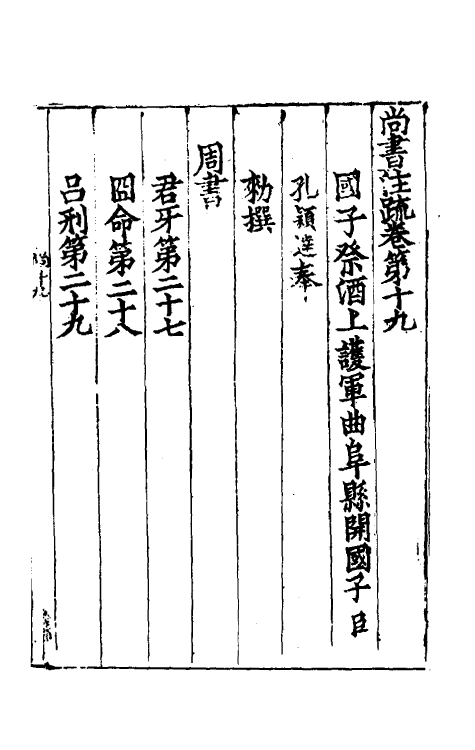 尚書注疏卷第十九
國子祭酒上護軍曲阜縣開國子臣
孔穎達奉
勑撰
周書
君牙第二十七
冏命第二十八
吕刑第二十九